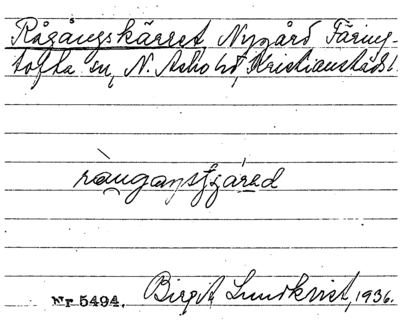 Rågångskärret Nygård Färing-
tofta sn, N. Åsbo hd, Kristianstads l.
Nr 5494. Birgit Lundkvist, 1936.